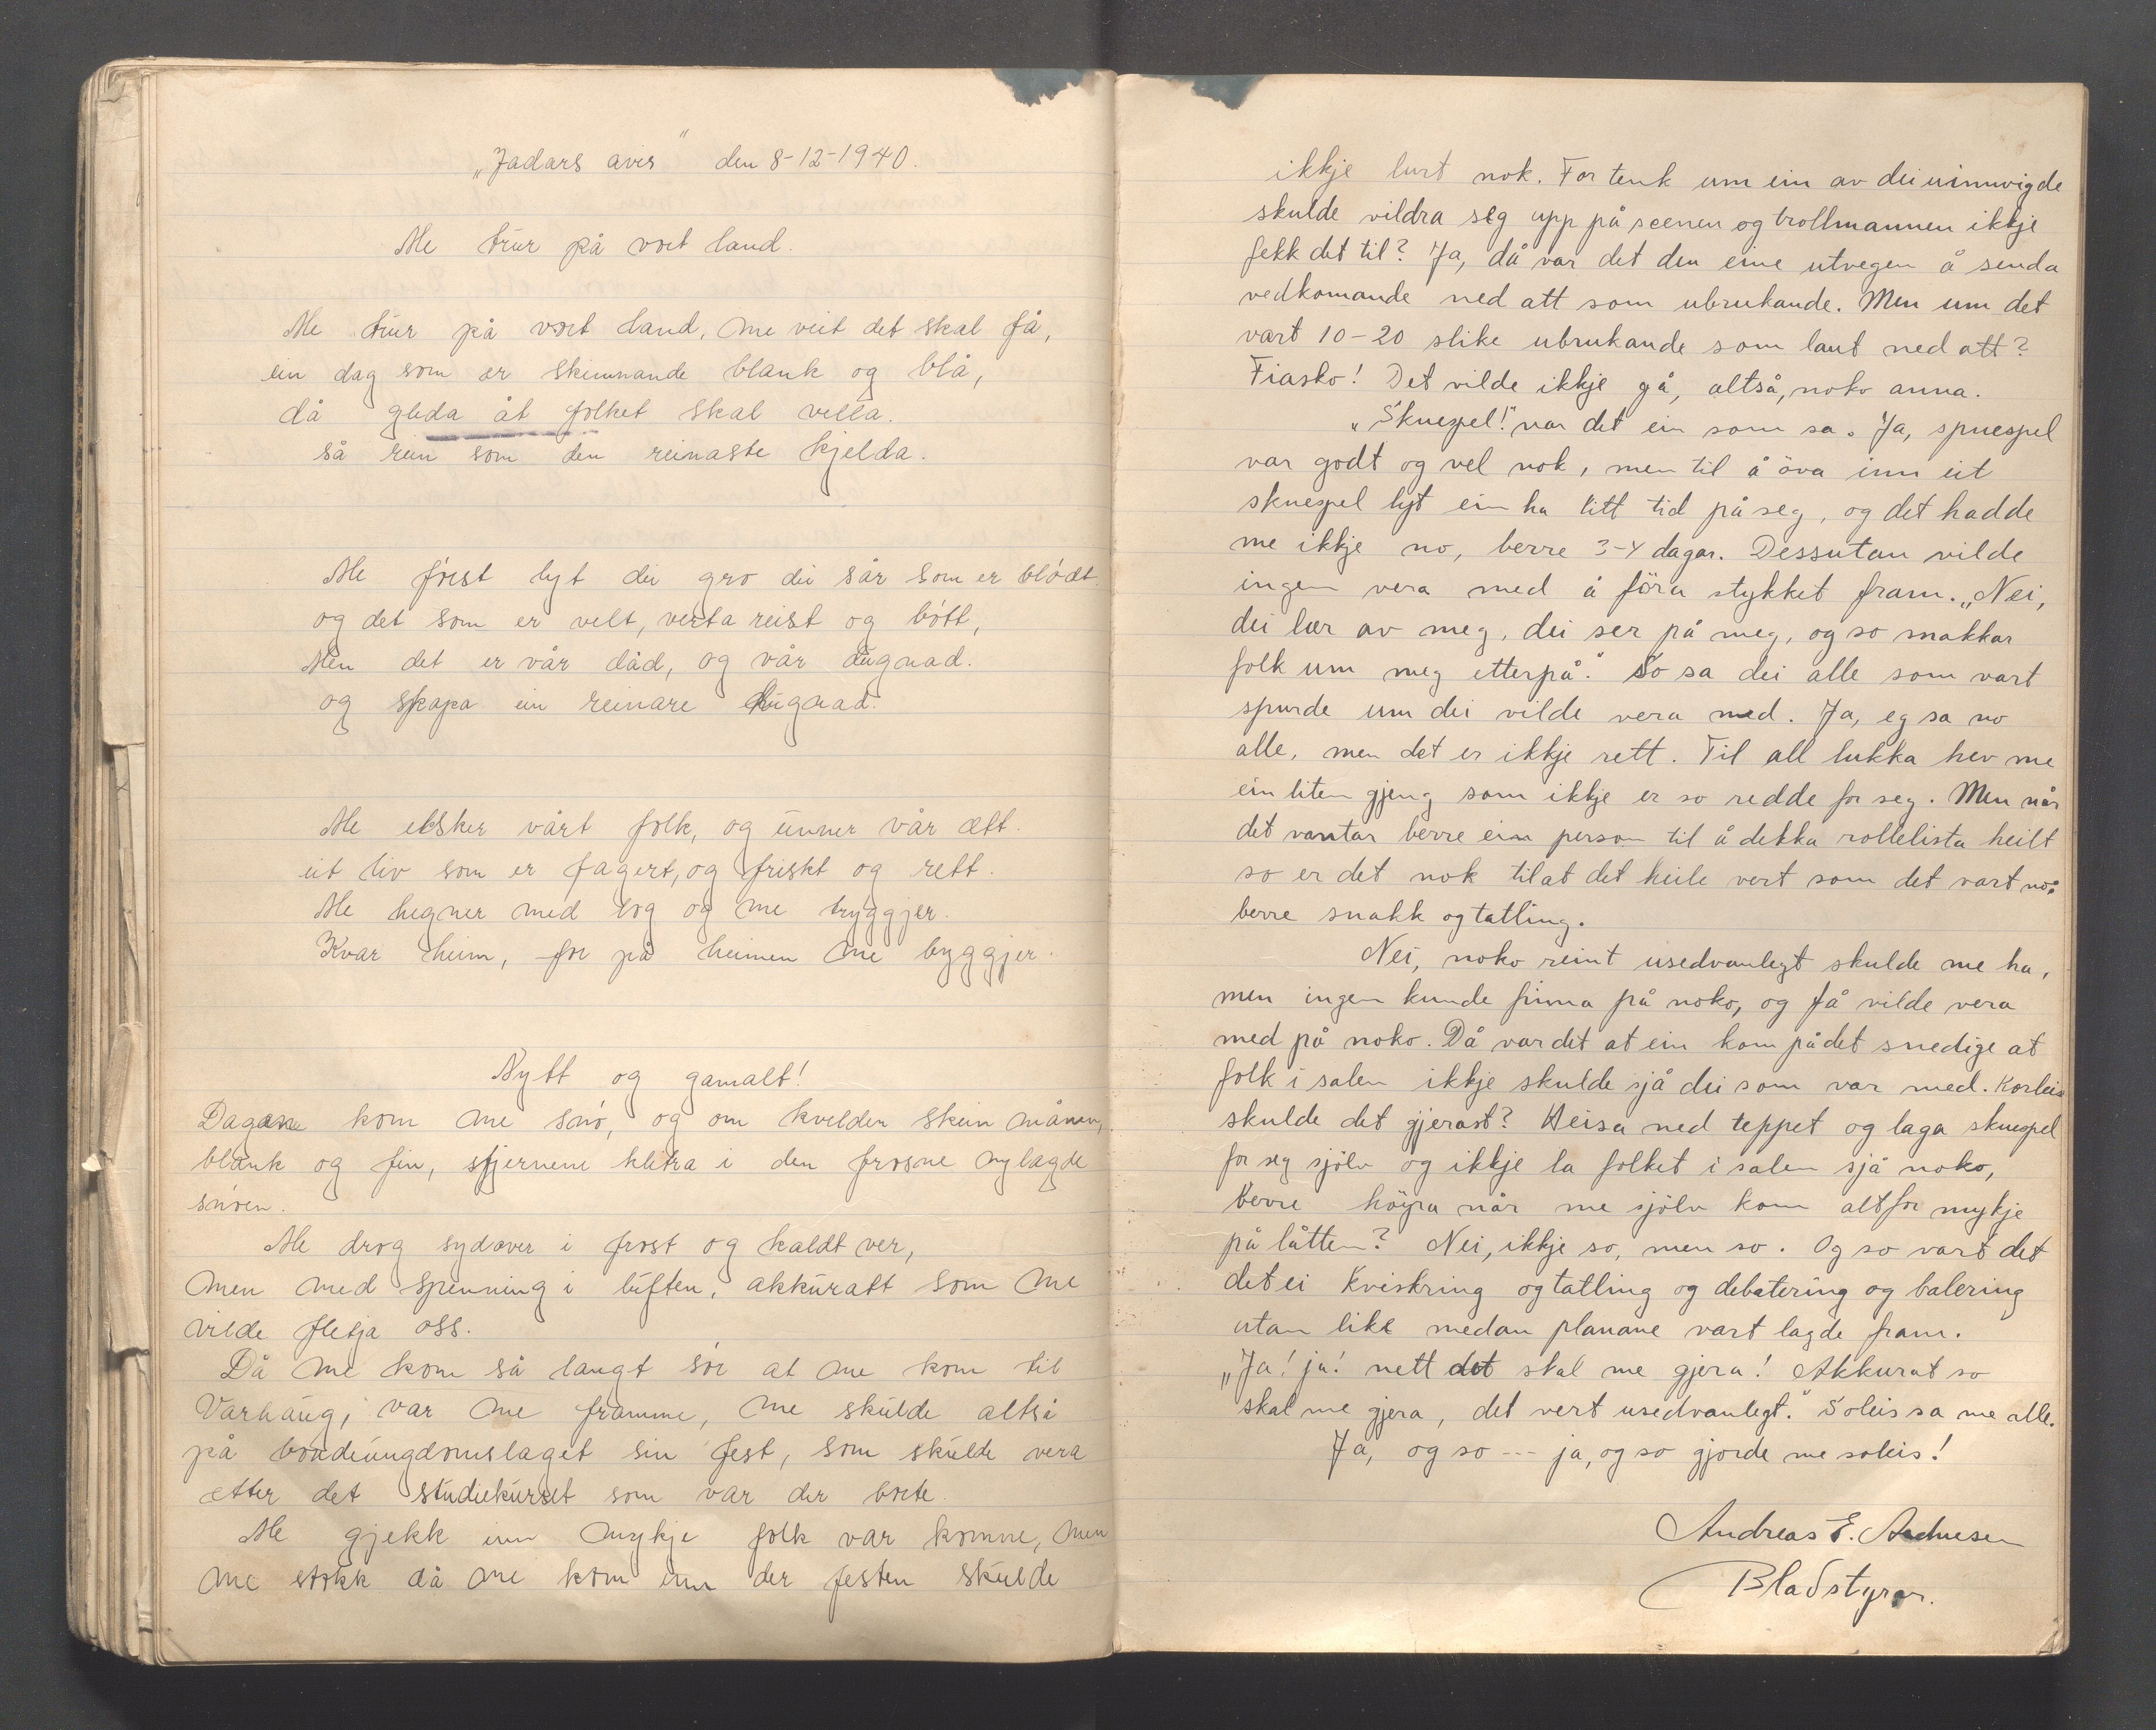 „Jadars avis" den 8-12-1940.
Me trur på vort land.
Me trur på vort land, me veit det skal få,
ein dag som er skinnande blank og blå,
då gleda åt folket skal vella.
så rein som den reinaste kjelda.
Me først lyt dei gro dei sår som er blødt.
og det som er velt, verta reist og bøtt,
Men det er vår dåd, og vår dugnad.
og skapa ein reinare hugnad.
Me elsker vårt folk, og unner vår ætt.
eit liv som er fagert, og friskt og rett.
Me hegner med log og me tryggjer.
Kvar heim, for på heimen me byggjer.
Nytt og gamalt!
Dagane kom me snø, og om kvelden skein månen,
blank og fin, stjernene klitra i den frosne nylagde
snøen.
Me drog sydover i frost og kaldt ver,
men med spenning i luften, akkuratt som me
vilde fletja oss.
Då me kom så langt sør at me kom til
Varhaug, var me framme, me skulde altså
på bondeungdomslaget sin fest, som skulde vera
etter det studiekurset som var der borte
Me gjekk inn mykje folk var komne, men
me stokk då me kom inn der festen skulde
ikkje lurt nok. For tenk um ein av dei uinnvigde
skulde vildra seg upp på scenen og trollmannen ikkje
fekk det til? Ja, då var det den eine utvegen å senda
vedkomande ned att som ubrukande. Men um det
vart 10-20 slike ubrukande som laut ned att?
Fiasko! Det vilde ikkje gå, altså, noko anna.
„Skuespel!" var det ein som sa. Ja, spuespel
var godt og vel nok, men til å öva inn eit
skuespel lyt ein ha litt tid på seg, og det hadde
me ikkje no, berre 3-4 dagar. Dessutan vilde
ingen vera med å föra stykket fram. „Nei,
dei lær av meg, dei ser på meg, og so snakkar
folk um meg etterpå." So sa dei alle som vart
spurde um dei vilde vera med. Ja, eg sa no
alle, men det er ikkje rett. Til all lukka hev me
ein liten gjeng som ikkje er so redde for seg. Men når
det vantar berre ein person til å dekka rollelista heilt
so er det nok til at det heile vert som det vart no:
berre snakk og tatling.
Nei, noko reint usedvanlegt skulde me ha,
men ingen kunde finna på noko, og få vilde vera
med på noko. Då var det at ein kom på det snedige at
folk i salen ikkje skulde sjå dei som var med. Korleis
skulde det gjerast? Heisa ned teppet og laga skuespel
for seg sjölv og ikkje la folket i salen sjå noko,
berre höyra når me sjölv kom altfor mykje
på låtten? Nei, ikkje so, men so. Og so vart det
det ei kviskring og tatling og debatering og balering
utan like medan planane vart lagde fram.
„Ja! ja! nett det skal me gjera! Akkurat so
skal me gjera, det vert usedvanlegt." Soleis sa me alle.
Ja, og so --- ja, og so gjorde me soleis!
Andreas E.
Bladstyrar.